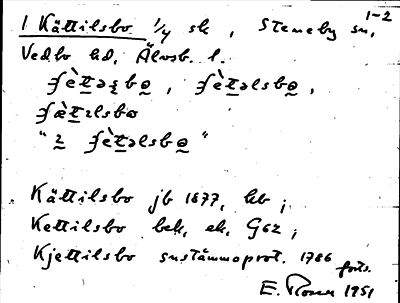 1-2
1 Kättilsbo 1/4 sk, Steneby sn,
Vedbo hd, Älvsb. l.
ʃètəʂbo̲, ʃètəlsbo̲,
ʃætɪlsbo
"2 ʃètəlsbo̲"
Kättilsbo jb 1877, hb;
Kettilsbo bek, ek, G62;
Kjettilsbo sustämmoprot. 1786
forts.
E. Rosen 1951